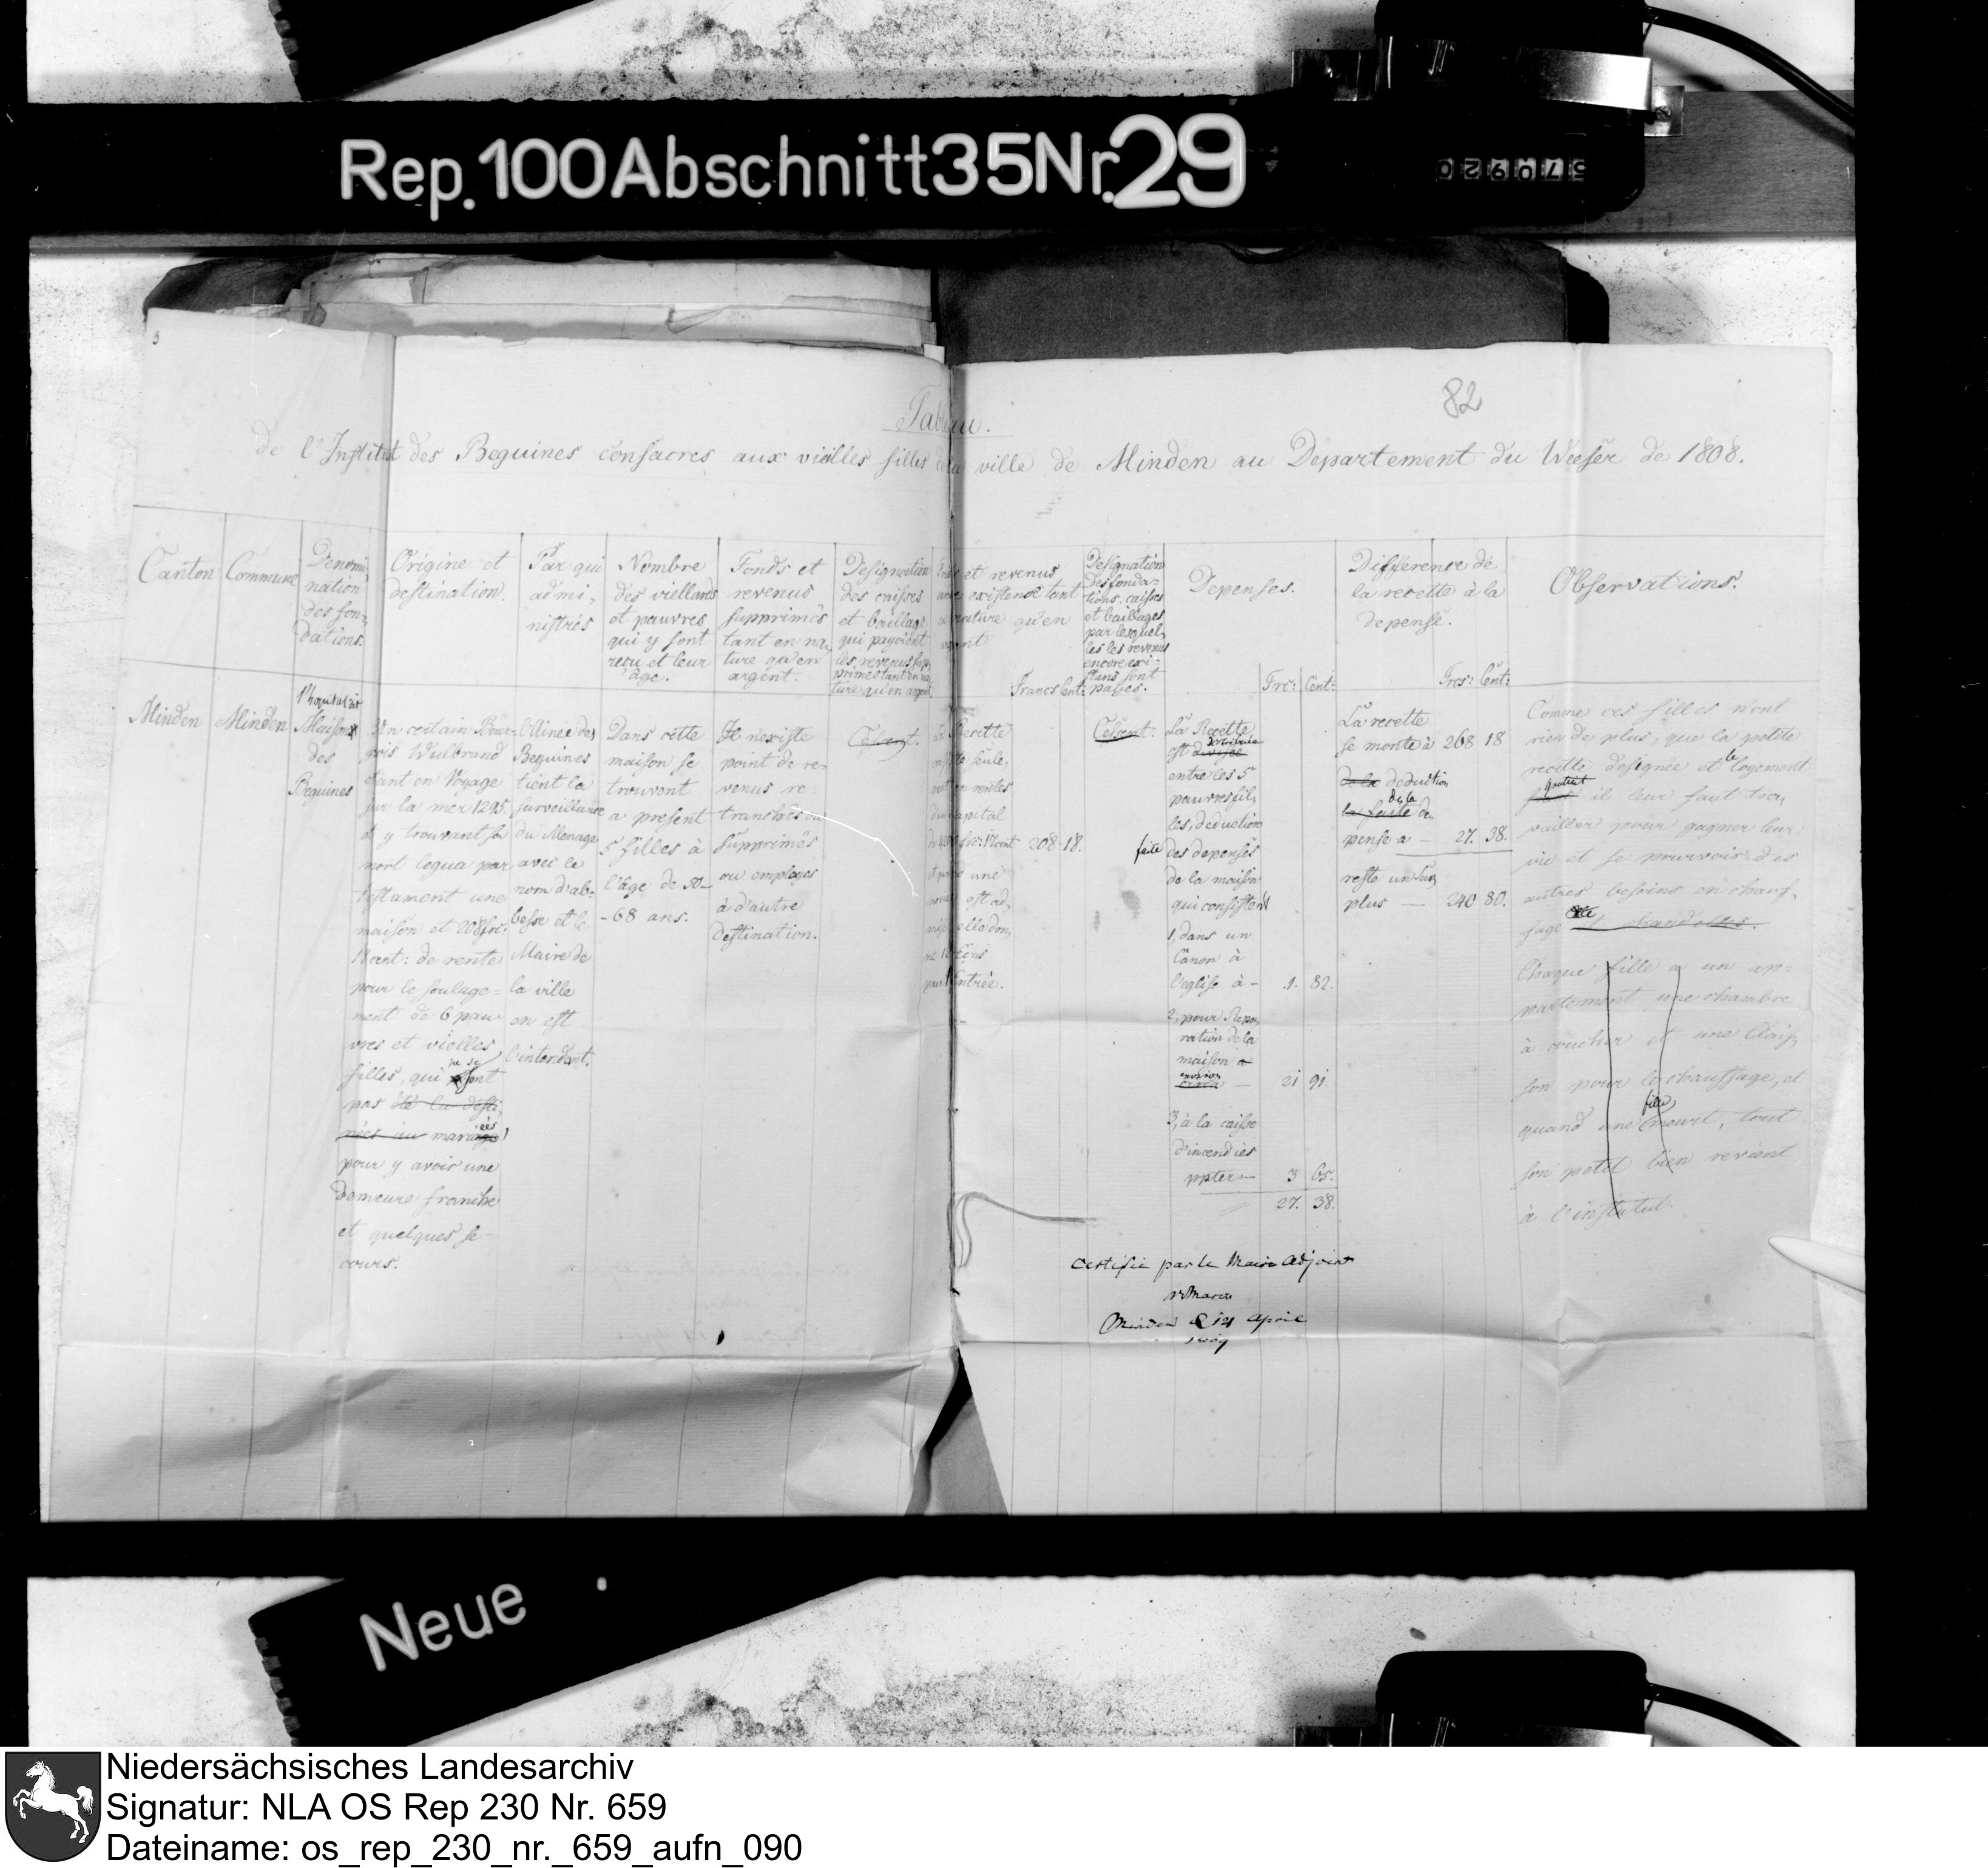 Rep. 100 Abschnitt 35 Nr. 29
570920
3
82
Tableau.
de l'Institut des Beguines consacres aux vièilles filles de la ville de Minden au Departement du Weeser de 1808.
Canton
Commune
Denomi
nation
des fon,
dations.
Origine et
destination.
Par qui
admi,
nistrés
Nombre
des viellards
et pauvres
qui y sont
reçu et leur
âge.
Fonds et
revenus
supprimés
tant en na,
ture qu'en
argent.
Designation
des caisses
et baillag:
qui payoient
les revenus sup,
primes tant en na,
ture qu'en argent
et revenus
existence tant
nature qu'en
Francs Cent:
Designation
des fonda-
tions, caisses
et baillages
par lesquel,
les les revenus
encore exi-
stans sont
payes.
Depenses.
Frc: Cent:
Difference de
la recette à la
depense.
Frcs: Cent:
Observations.
Minden
Minden
Maison
des
Beguines
Un certain Bour-
gois Wulbrand
etant en Voyage
sur la mer 1295.
et y trouvant sa
mort legua par
testament une
maison et 208 frc.
18 cent: de rente
pour le soulage-
ment de 6 pau
vres et vielles
filles, qui ne se sont
pas été la desti,
nées au mariage
pour y avoir une
demeure franche
et quelques se-
cours.
l'Ainée des
Beguines
tient la
surveillance
du Menage
avec le
nom d'ab-
besse et le
Maire de
la ville
en est
l'intendant.
Dans cette
maison se
trouvent
a present
5 filles à
l'âge de 50-
- 68 ans.
Il n'existe
point de re-
venus re-
tranchés ou
supprimés
ou employes
à d'autre
destination.
Cessent.
La Recette
seule,
en rentes
du capital
une
est ad,
elle don,
ne 12 Ecus
pour l'entrée.
208 18.
Cessent.
La Recette
est divisée distribuée
entre les 5
pauvres fil,
les, deduction
faite des depenses
de la maison
qui consistent
1, dans un
Canon à
l'eglise à - 1. 82.
2, pour Repa,
ration de la
maison a
environ circa - 21 91.
3, à la caisse
d'incendies
- 3 65.
27. 38.
La recette
se monte à 268 18
de la deduction
la faite de la de,
pense a - 27. 38.
reste un sur,
plus - 240 80.
Comme ces filles n'ont
rien de plus, que la petite
recette designée et le logement
gratuit il leur faut tra,
vailler pour gagner leur
vie et se pourvoir des
autres besoins en chauf,
fage et chandelles.
Chaque fille a un ap-
partement une chambre
à coucher et une Clois,
son pour le chauffage, et
quand une fille meurt, tout
son petit bien revient
à l'institut.
certifié par le Maire adjoint
Minden le 121 April
1809
Neue
Niedersächsisches Landesarchiv
Signatur: NLA OS Rep 230 Nr. 659
Dateiname: os_rep_230_nr._659_aufn_090